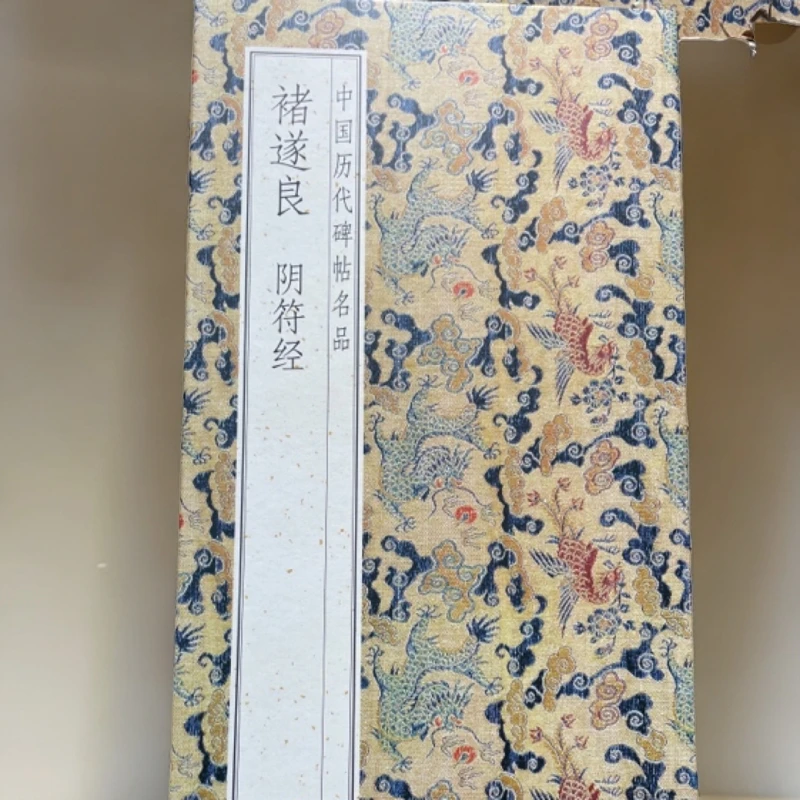 中国历代碑帖名品
褚遂良 阴符经